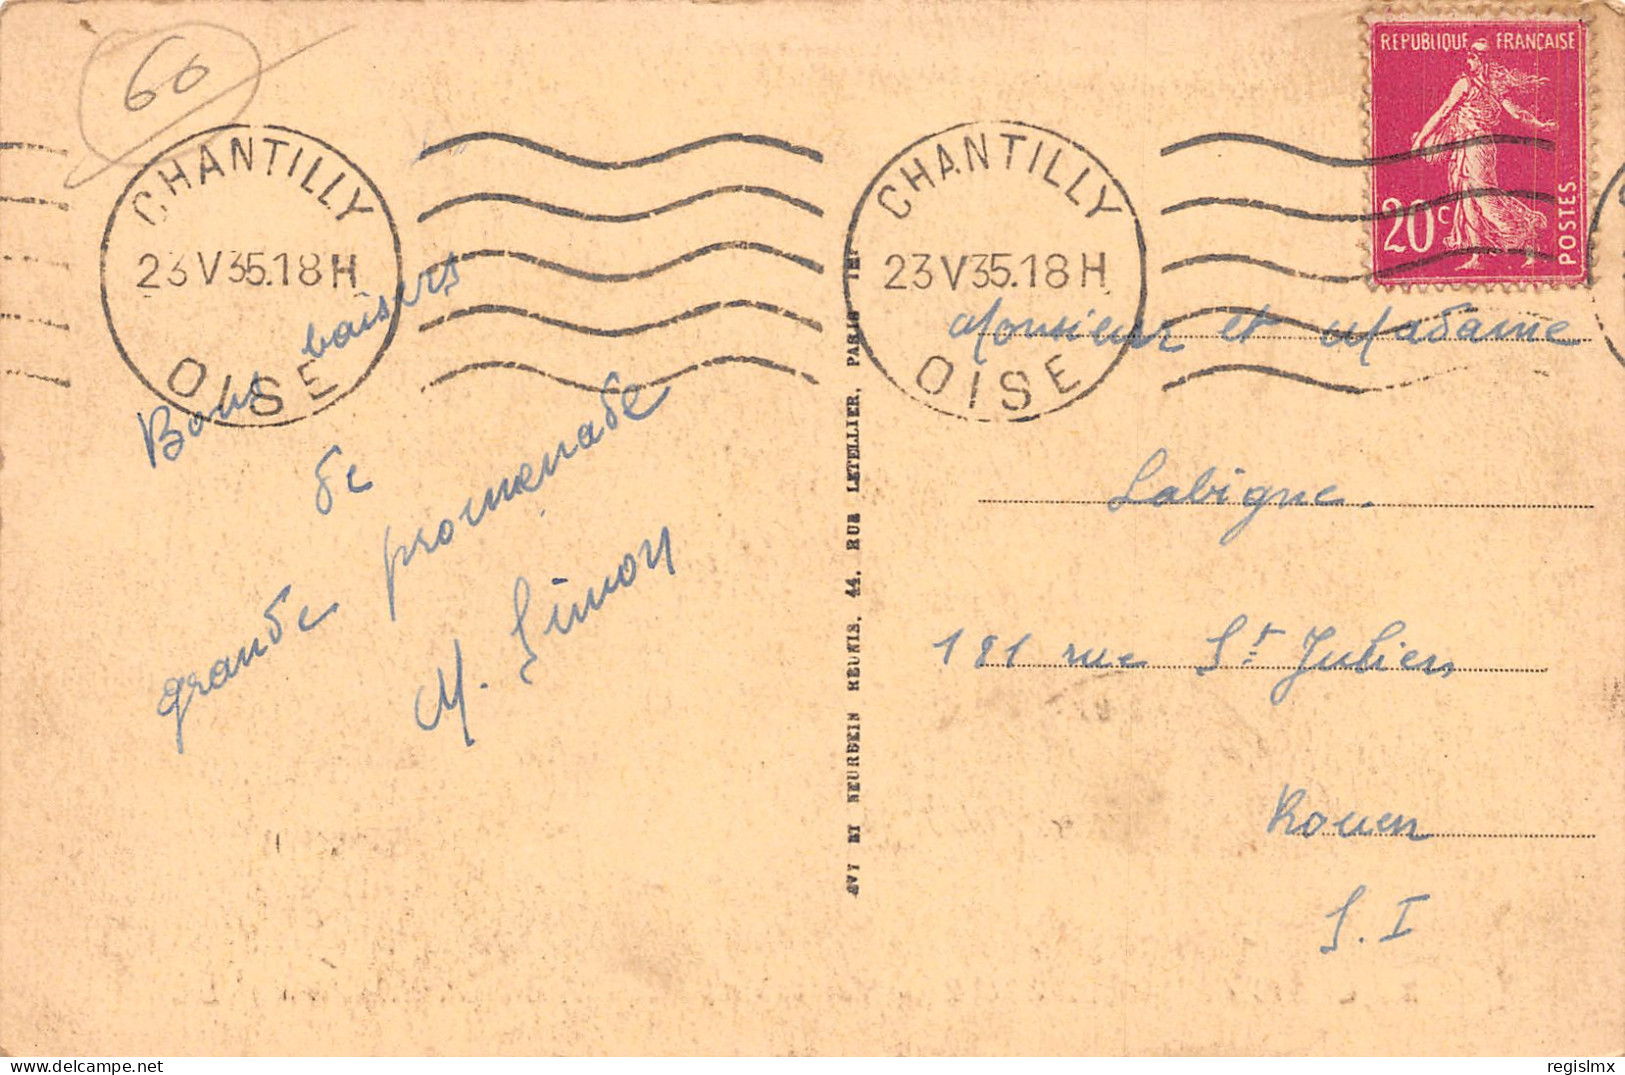 60
CHANTILLY
23 V 35.18 H
OISE
CHANTILLY
23 V 35.18 H
OISE
REPUBLIQUE FRANÇAISE
20c
POSTES
Bons baisers
de
grande promenade
M. Simon
LEVY ET NEURDEIN REUNIS, 44, RUE LETELLIER, PARIS
Monsieur et Madame
Labigne.
181 rue St Julien
Rouen
S. I
delcampe.net
regislmx